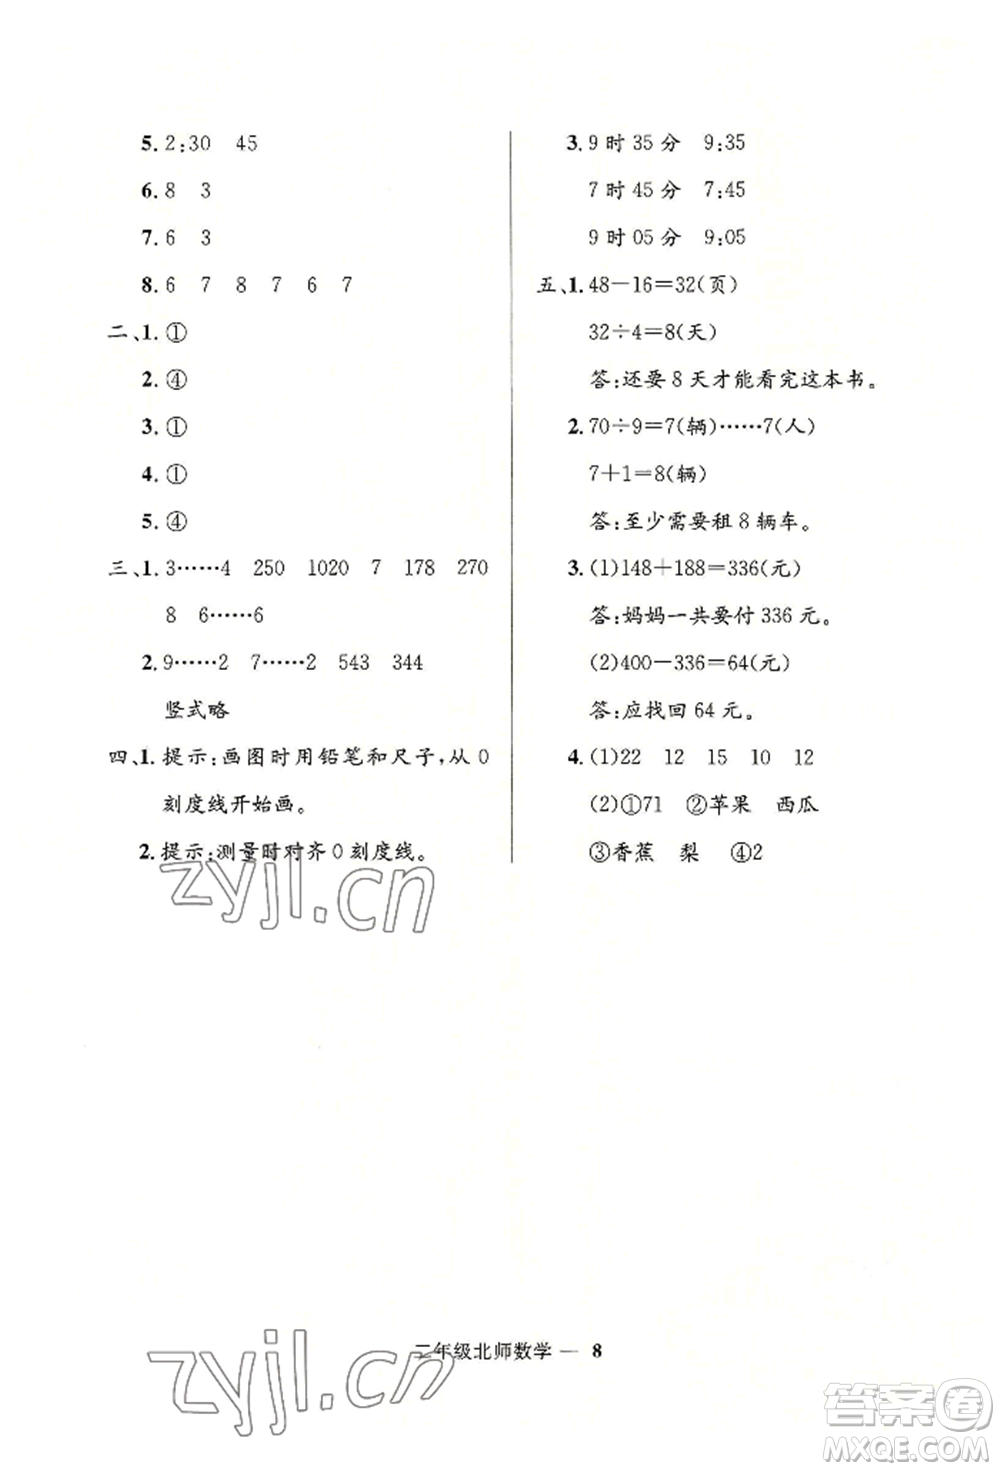 5. 2:30 45
6. 8 3
7. 6 3
8. 6 7 8 7 6 7
二、1. ①
2. ④
3. ①
4. ①
5. ④
三、1. 3……4 250 1020 7 178 270
8 6……6
2. 9……2 7……2 543 344
竖式略
四、1. 提示:画图时用铅笔和尺子,从 0
刻度线开始画。
2. 提示:测量时对齐 0 刻度线。
3. 9 时 35 分 9:35
7 时 45 分 7:45
9 时 05 分 9:05
五、1. 48－16＝32(页)
32÷4＝8(天)
答:还要 8 天才能看完这本书。
2. 70÷9＝7(辆)……7(人)
7＋1＝8(辆)
答:至少需要租 8 辆车。
3. (1)148＋188＝336(元)
答:妈妈一共要付 336 元。
(2)400－336＝64(元)
答:应找回 64 元。
4. (1)22 12 15 10 12
(2)①71 ②苹果 西瓜
③香蕉 梨 ④2
zyjl.cn
二年级北师数学 — 8
zyjl.cn
答案卷
MXQE.COM